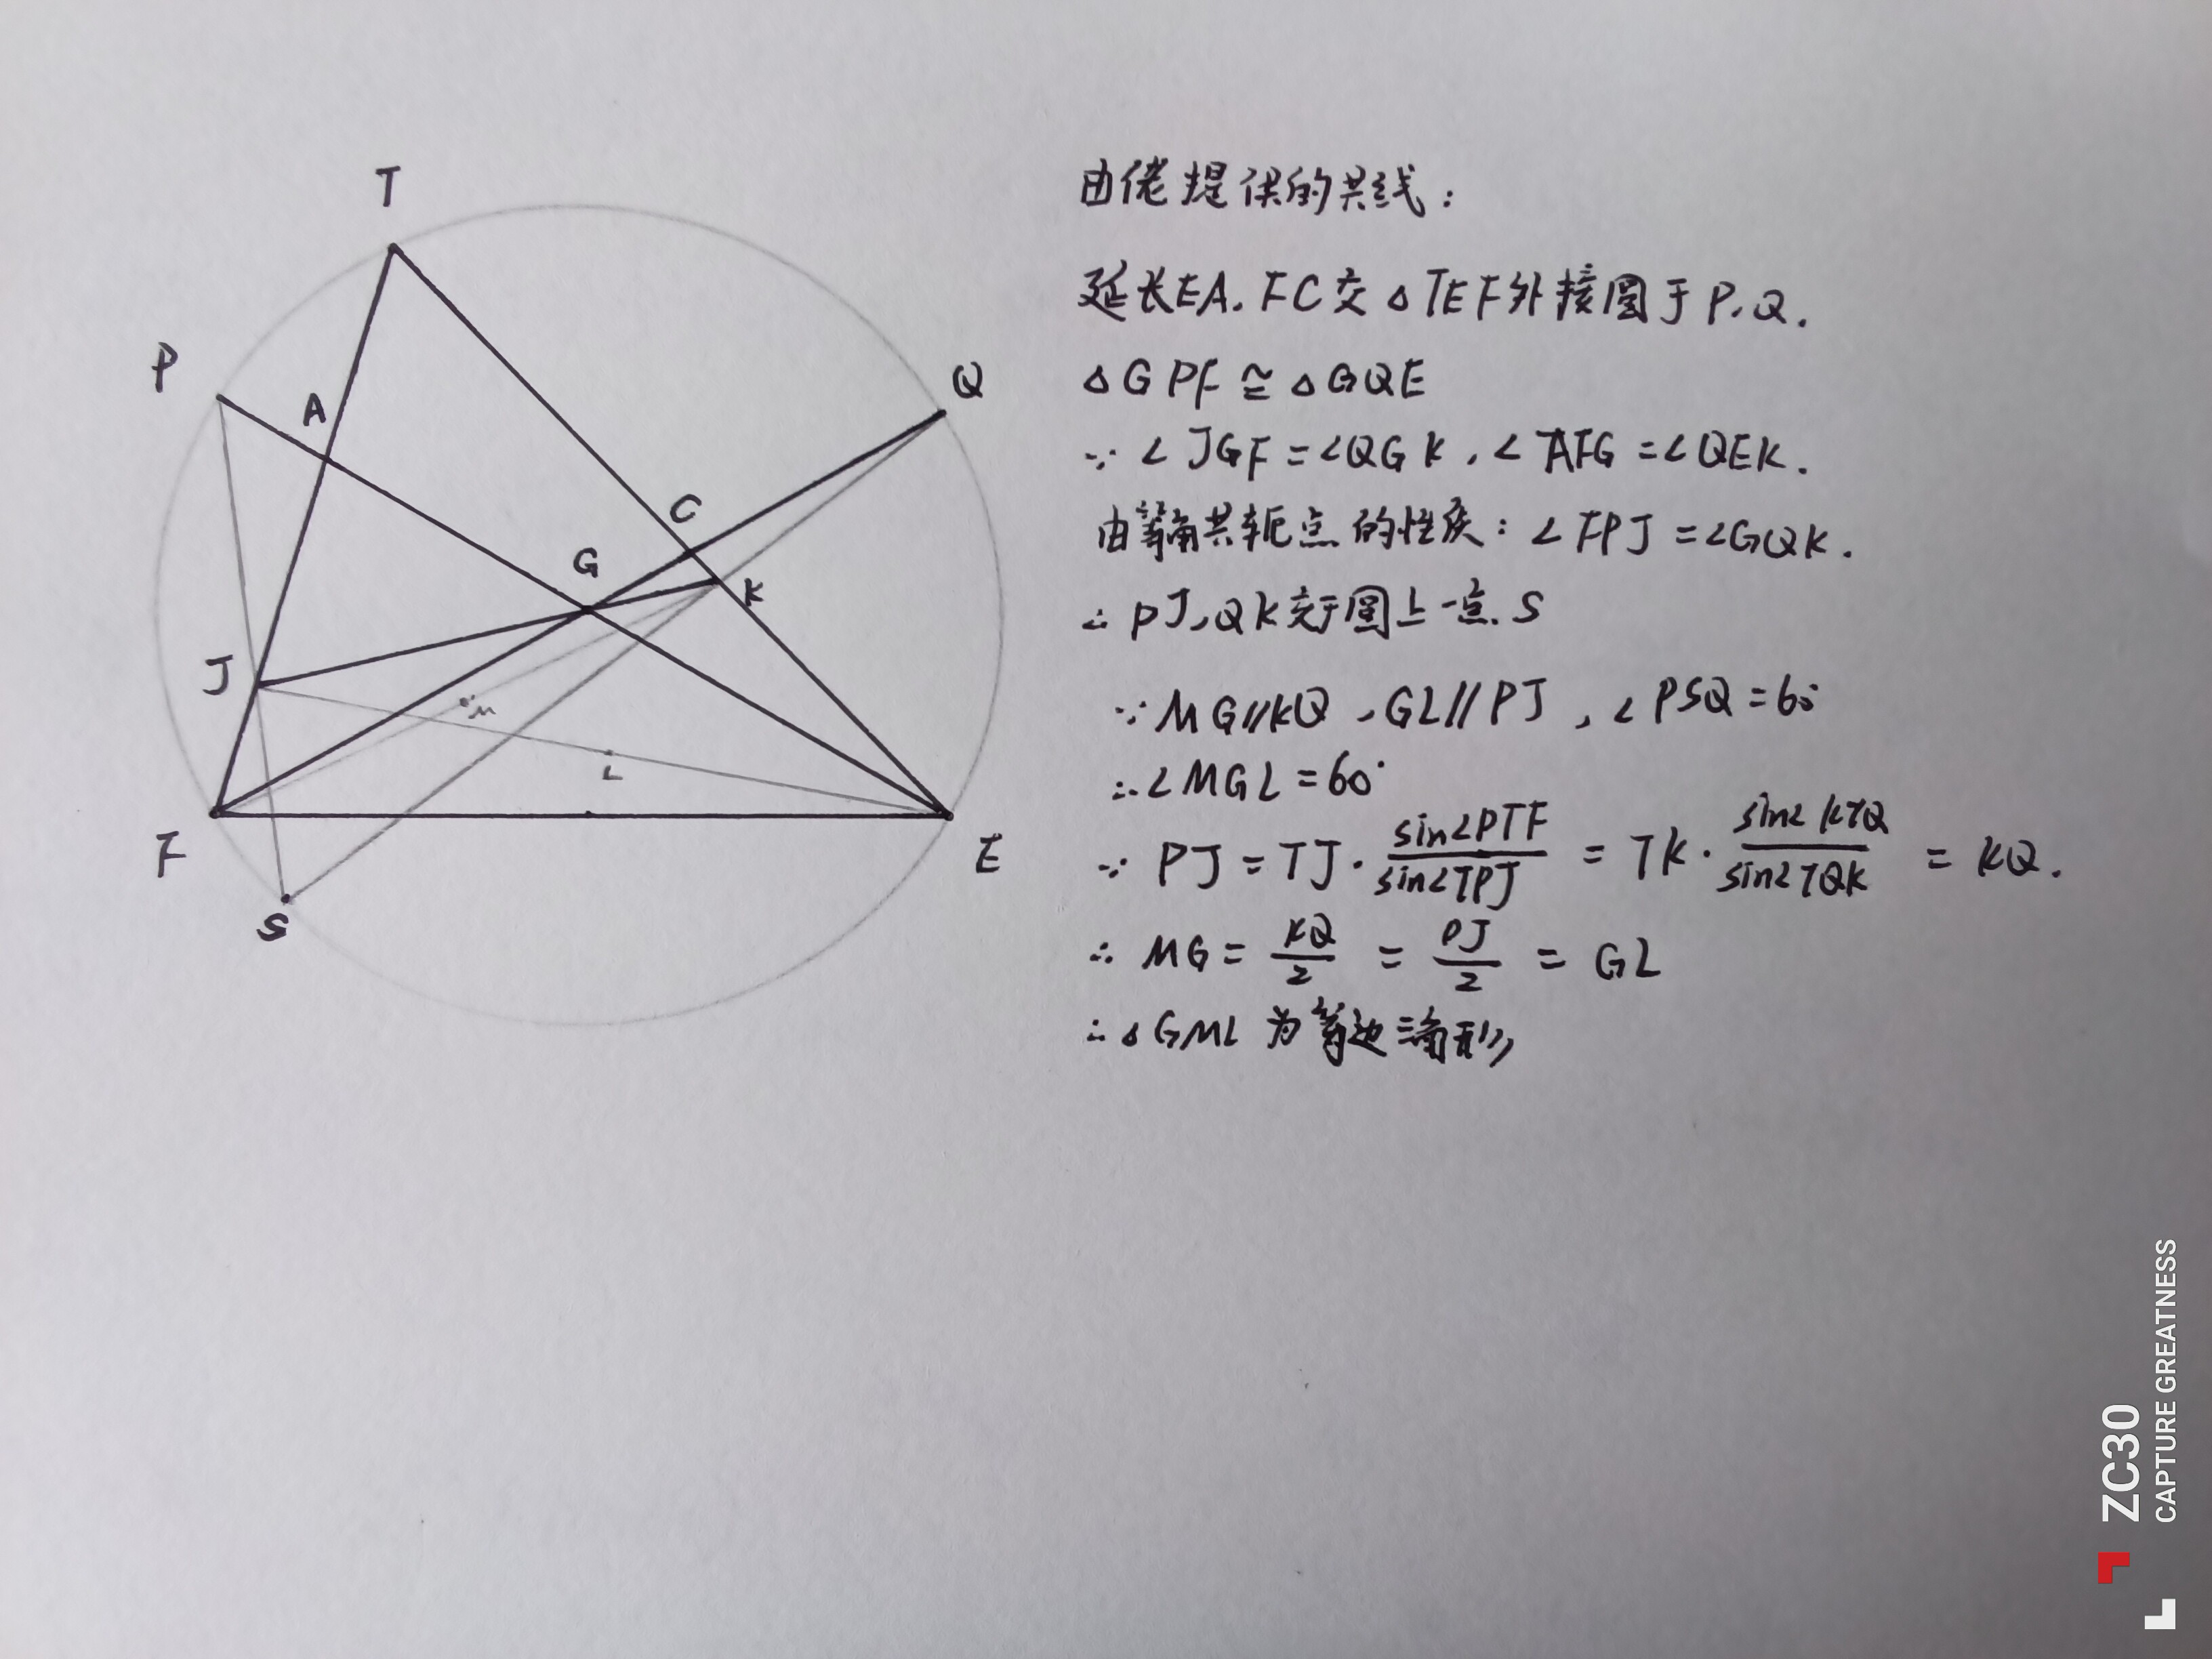 T
P
A
Q
C
G
K
J
M
L
F
E
S
由佬提供的共线：
延长EA.FC交△TEF外接圆于P.Q.
△GPF≅△GQE
∵∠JGF=∠QGK，∠AFG=∠QEK.
由等角共轭点的性质：∠FPJ=∠GQK.
∴PJ,QK交于圆上一点.S
∵MG//KQ，GL//PJ，∠PSQ=60°
∴∠MGL=60°
∵PJ=TJ·sin∠PTF/sin∠TPJ=TK·sin∠KTQ/sin∠TQK=KQ.
∴MG=KQ/2=PJ/2=GL
∴△GML为等边三角形//
ZC30
CAPTURE GREATNESS